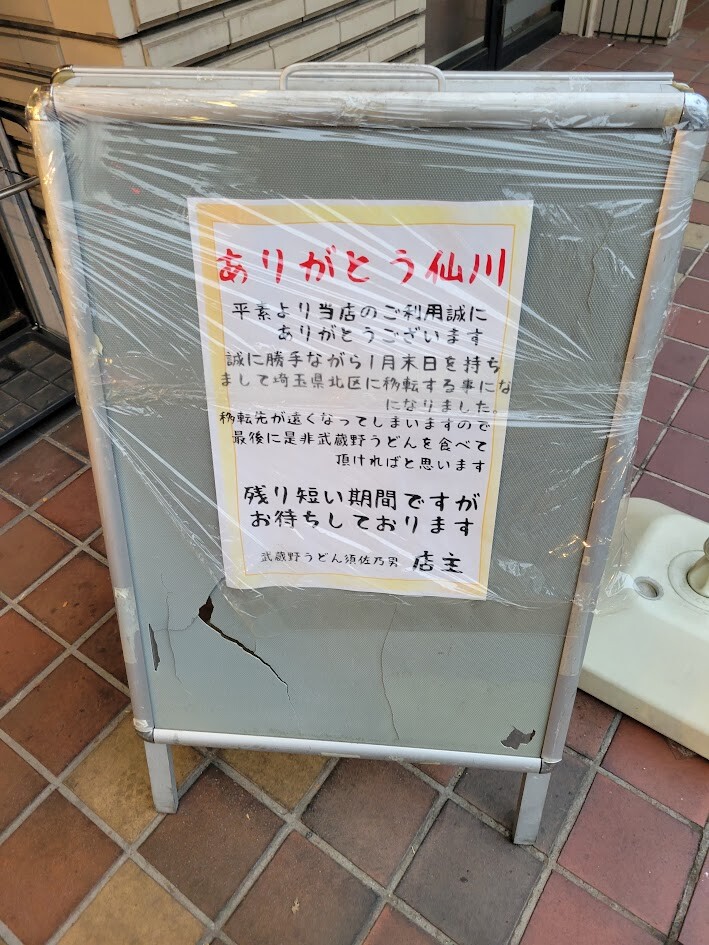 ありがとう仙川
平素より当店のご利用誠に
ありがとうございます
誠に勝手ながら1月末日を持ち
まして埼玉県北区に移転する事にな
になりました。
移転先が遠くなってしまいますので
最後に是非武蔵野うどんを食べて
頂ければと思います
残り短い期間ですが
お待ちしております
武蔵野うどん須佐乃男 店主